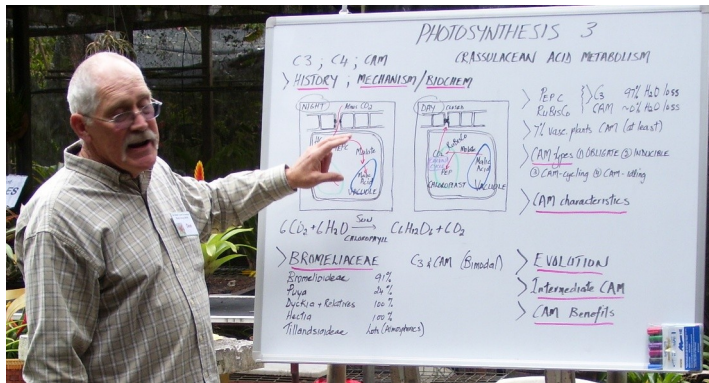 PHOTOSYNTHESIS 3
C3 ; C4 ; CAM
CRASSULACEAN ACID METABOLISM
> HISTORY ; MECHANISM / BIOCHEM
NIGHT
Atmos CO2
PEPC
Malate
Malic Acid
VACUOLE
DAY
closed
RuBisCo
CO2
Malate
Calvin Cycle
PEP
Malic Acid
CHLOROPLAST
VACUOLE
> PEPC } > C3 97% H2O loss
RuBisCo } CAM ~0% H2O loss
> 7% vasc. plants CAM (at least)
> CAM types > ① OBLIGATE ② INDUCIBLE
③ CAM-cycling ④ CAM-idling
> CAM characteristics
6CO2 + 6H2O Sun → CHLOROPHYLL C6H12O6 + 6O2
> BROMELIACEAE C3 & CAM (Bimodal)
Bromelioideae 91%
Puya 24%
Dyckia + Relatives 100%
Hectia 100%
Tillandsioideae Lots (Atmospherics)
> EVOLUTION
> Intermediate CAM
> CAM Benefits